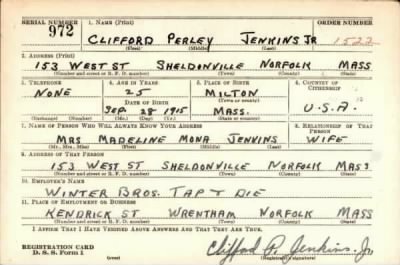 SERIAL NUMBER 1. NAME (Print) ORDER NUMBER
972 CLIFFORD PERLEY JENKINS JR 1522
(First) (Middle) (Last)
2. ADDRESS (Print)
153 WEST ST SHELDONVILLE NORFOLK MASS
(Number and street or R. F. D. number) (Town) (County) (State)
3. TELEPHONE 4. AGE IN YEARS 5. PLACE OF BIRTH 6. COUNTRY OF CITIZENSHIP
NONE 25 MILTON
DATE OF BIRTH (Town or county)
SEP. 1915 MASS. U.S.A.
(Exchange) (Number) (Mo.) (Day) (Yr.) (State or country)
7. NAME OF PERSON WHO WILL ALWAYS KNOW YOUR ADDRESS 8. RELATIONSHIP OF THAT PERSON
MRS MADELINE MONA JENKINS WIFE
(Mr., Mrs., Miss) (First) (Middle) (Last)
9. ADDRESS OF THAT PERSON
153 WEST ST SHELDONVILLE NORFOLK MASS
(Number and street or R. F. D. number) (Town) (County) (State)
10. EMPLOYER'S NAME
WINTER BROS. TAP + DIE
11. PLACE OF EMPLOYMENT OR BUSINESS
KENDRICK ST WRENTHAM NORFOLK MASS
(Number and street or R. F. D. number) (Town) (County) (State)
I AFFIRM THAT I HAVE VERIFIED ABOVE ANSWERS AND THAT THEY ARE TRUE.
REGISTRATION CARD
D. S. S. Form 1 (over) Clifford P. Jenkins, Jr
(Registrant's signature)